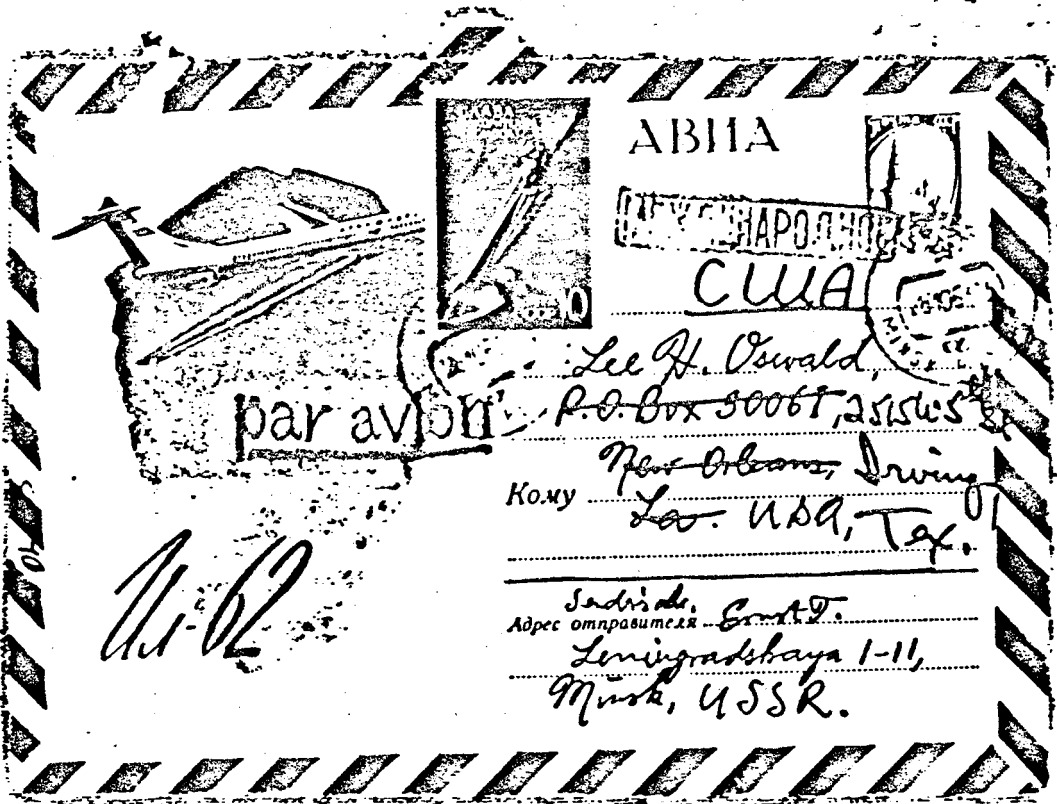 АВИА
МЕЖДУНАРОДНОЕ
США
Lee H. Oswald,
P.O. Box 30061, 2515 W. 5th St.
par avion
New Orleans, Irving,
Кому
La. USA, Tex.
Ил-62
Sender's adr. Ernst T.
Адрес отправителя
Leningradskaya 1-11,
Minsk, USSR.